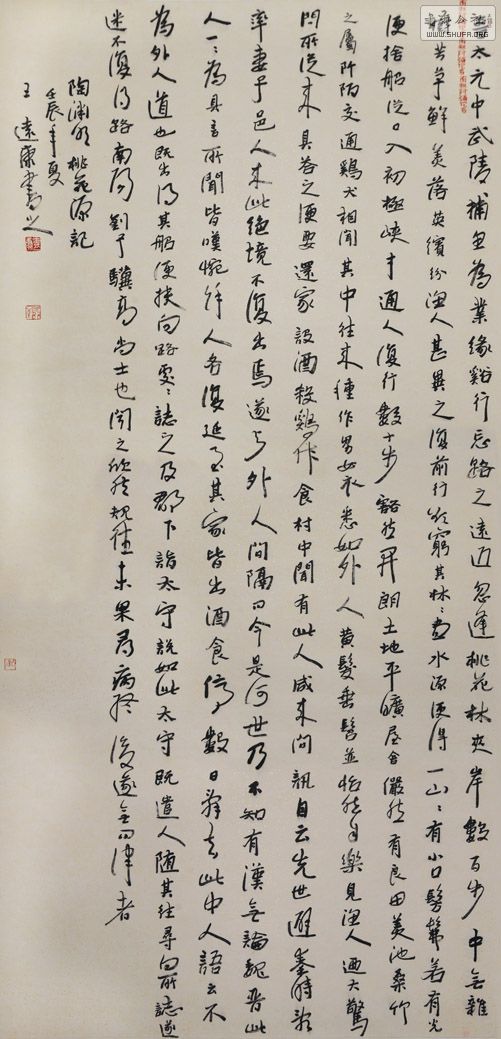 晋太元中武陵捕魚為業緣谿行忘路之遠近忽逢桃花林夾岸數百步中無雜
樹芳草鮮美落英繽紛漁人甚異之復前行欲窮其林〻盡水源便得一山〻有小口髣髴若有光
便捨船從口入初極狹才通人復行數十步豁然開朗土地平曠屋舍儼然有良田美池桑竹
之屬阡陌交通鷄犬相聞其中往來種作男女衣悉如外人黄髮垂髫並怡然自樂見漁人迺大驚
問所從來具答之便要還家設酒殺鷄作食村中聞有此人咸來問訊自云先世避秦時亂
率妻子邑人來此絶境不復出焉遂與外人間隔問今是何世乃不知有漢無論魏晉此
人一〻為具言所聞皆嘆惋餘人各復延至其家皆出酒食停數日辭去此中人語云不
為外人道也既出得其船便扶向路處〻誌之及郡下詣太守説如此太守既遣人隨其往尋向所誌遂
迷不復得路南陽劉子驥高尚士也聞之欣然規往未果尋病終後遂無問津者
陶淵明桃花源記
壬辰年夏
王遠康書之
WWW.SHUFA.ORG